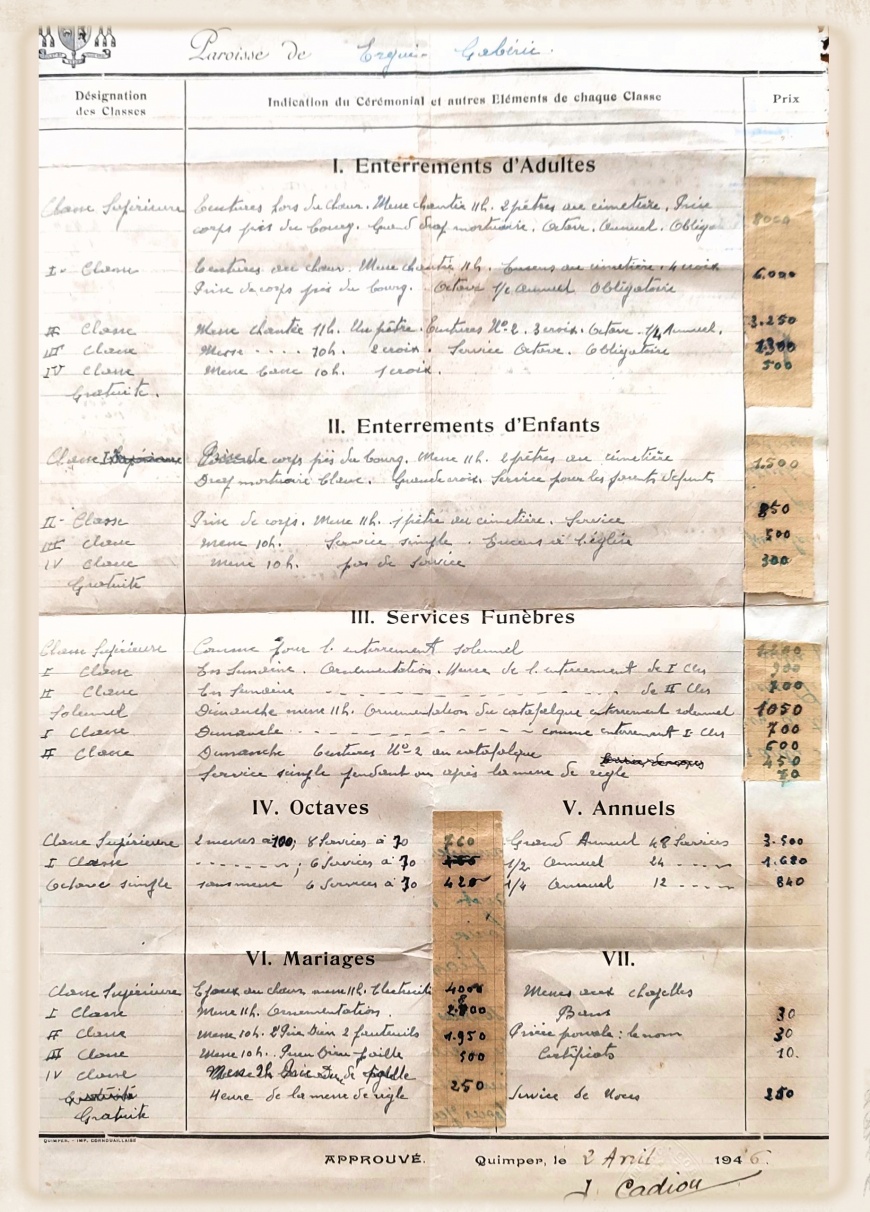 Paroisse de Ergué-Gabéric.
Désignation des Classes
Indication du Cérémonial et autres Eléments de chaque Classe
Prix
I. Enterrements d'Adultes
Classe Supérieure Tentures hors du chœur. Messe chantée 11h. 2 prêtres au cimetière. Prise
corps près du bourg. Grand drap mortuaire. Octave. Annuel. Oblig 8000
I. Classe Tentures au chœur. Messe chantée 11h. Encens au cimetière. 4 croix 6.000
Prise de corps près du bourg. Octave 1/2 Annuel Obligatoire
II Classe Messe chantée 11h. Un prêtre. Tentures No 2. 3 croix. Octave. 1/4 Annuel. 3.250
III Classe Messe .... 10h. 2 croix. Service Octave. Obligatoire 1300
IV Classe Messe basse 10h. 1 croix. 500
Gratuite.
II. Enterrements d'Enfants
Classe I Prise de corps près du bourg. Messe 11h. 2 prêtres au cimetière 1.500
Drap mortuaire blanc. Grande croix. Service pour les parents défunts
II - Classe Prise de corps. Messe 11h. 1 prêtre au cimetière. Service 850
III Classe Messe 10h. Service simple. Encens à l'église 500
IV Classe Messe 10h. pas de service 300
Gratuite
III. Services Funèbres
Classe Supérieure Comme pour l'enterrement solennel
I Classe En Semaine. Ornementation. Messe de l'enterrement de I Cles 900
II Classe En Semaine - - - - - - - - de II Cles 700
Solennel Dimanche messe 11h. Ornementation du catafalque enterrement solennel 1050
I Classe Dimanche - - - - - - - comme enterrement I Cles 700
II Classe Dimanche Tentures No 2 au catafalque 600
450
Service simple pendant ou après la messe de règle 70
IV. Octaves
Classe Supérieure 2 messes à 100; 8 Services à 70 760
I Classe - - - - - - ; 6 Services à 70
Octave simple sans messe 6 Services à 70 420
V. Annuels
Grand Annuel 48 Services 3.500
1/2 Annuel 24 - - - - 1.680
1/4 Annuel 12 - - - - 840
VI. Mariages
Classe Supérieure Epoux au chœur messe 11h. Electricité 4000
I Classe Messe 11h. Ornementation. 2.800
II Classe Messe 10h. 2 Prie Dieu 2 fauteuils 1.950
III Classe Messe 10h. Prieu Dieu paille 500
IV Classe Messe 9h Prie Dieu de paille
Gratuité Heure de la messe de règle 250
Gratuite
VII.
Messes aux chapelles
Bans 30
Prière ponale: le nom 30
Certificats 10.
Service de Noces 250
QUIMPER. - IMP. CORNOUAILLAISE
APPROUVÉ. Quimper, le 2 Avril 1946.
J. Cadiou